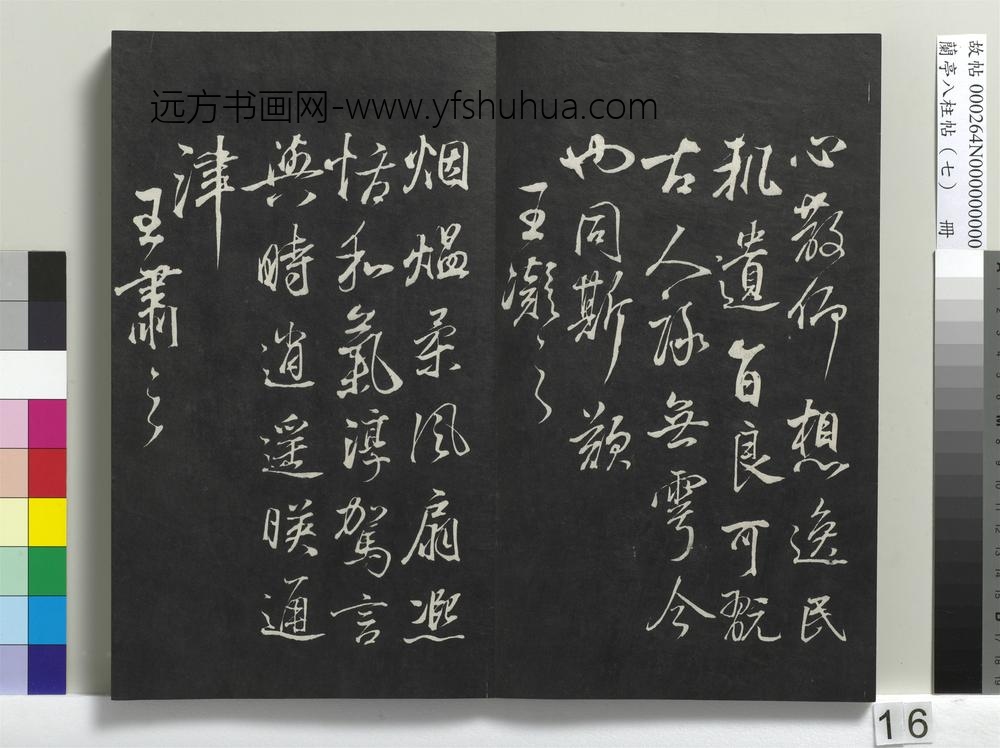 故帖 000264N000000000
蘭亭八柱帖（七） 冊
远方书画网-www.yfshuhua.com
心散仰想逸民
軌遺音良可翫
古人詠無雩今
也同斯歎
王凝之
烟熅柔風扇熈
怡和氣淳駕言
興時逍遥暎通
津
王肅之
16